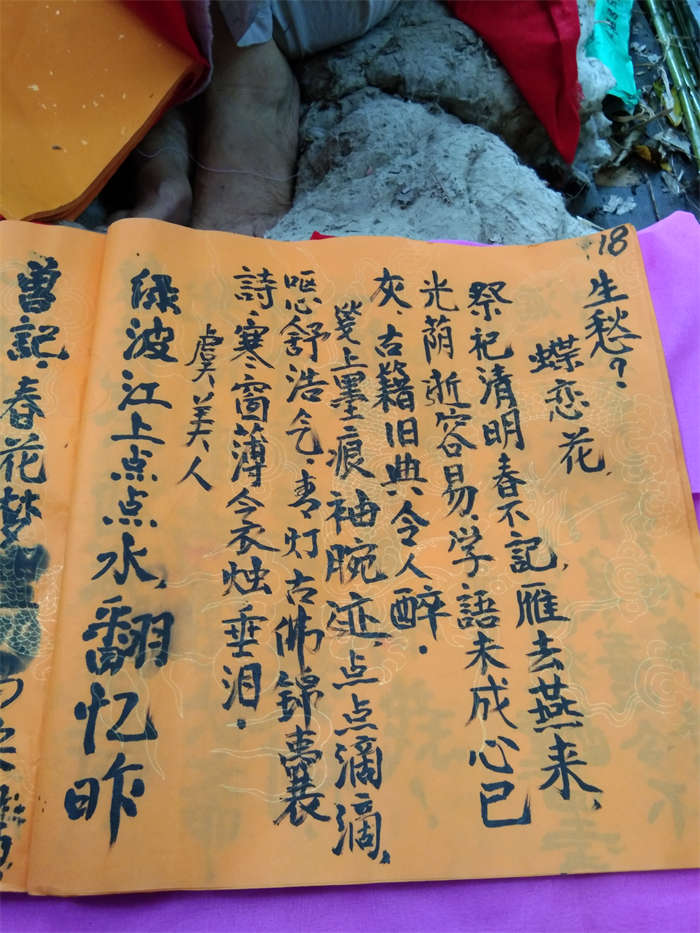 18
生愁？
蝶恋花
祭祀清明春不記，雁去燕来，
光荫逝容易．学語未成心已
灰、古籍旧典令人醉．
笺上墨痕袖腕迹，点点滴滴，
呕舒浩气．青灯古佛錦囊
詩、寒窗薄今衣烛垂泪．
虞美人
绿波江上点点水，翻忆昨
曾記．春花梦里